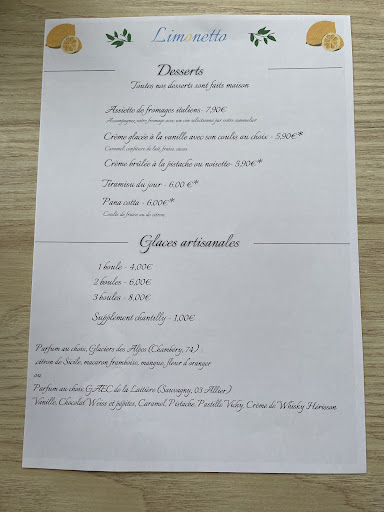 Limonetto
Desserts
Toutes nos desserts sont faits maison
Assiette de fromages italiens- 7,90€
Accompagnez votre fromage avec un vin sélectionné par votre sommelier
Crème glacée à la vanille avec son coulis au choix - 5,90€*
Caramel, confiture de lait, fraise, cacao
Crème brûlée à la pistache ou noisette- 5,90€*
Tiramisu du jour - 6,00 €*
Pana cotta - 6,00€*
Coulis de fraise ou de citron
Glaces artisanales
1 boule - 4,00€
2 boules - 6,00€
3 boules - 8,00€
Supplément chantilly - 1,00€
Parfum au choix, Glaciers des Alpes (Chambéry, 74) :
citron de Sicile, macaron framboise, mangue, fleur d'oranger
ou
Parfum au choix GAEC de la Laitière (Sauvagny, 03 Allier)
Vanille, Chocolat Weiss et pépites, Caramel, Pistache, Pastille Vichy, Crème de Whisky Hérisson